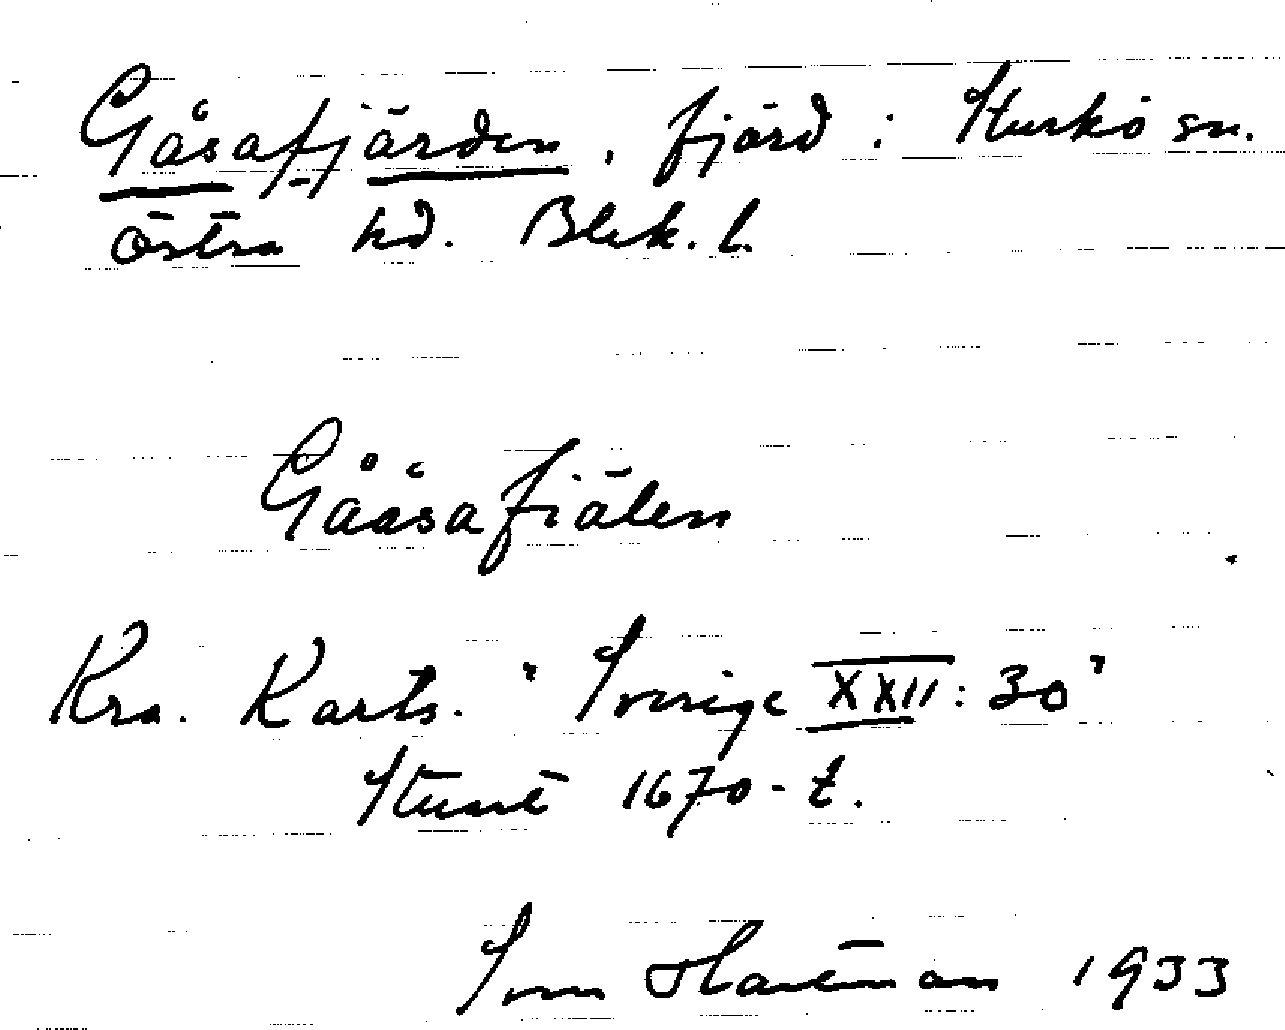 Gåsafjärden, fjärd i Sturkö sn.
Östra hd. Blek. l.
Gååsafiälen
Kra. Karts. "Sverige XXII: 30"
1670-t.
Sven Hartman 1933